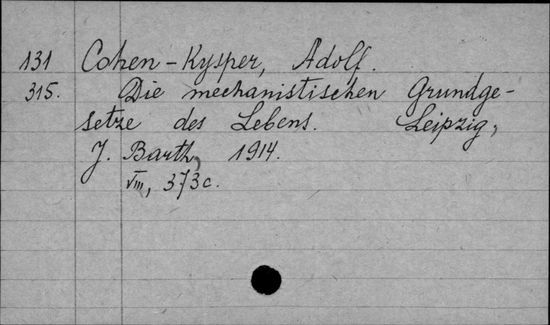 131 Cohen-Kysper, Adolf.
315. Die mechanistischen Grundge-
setze des Lebens. Leipzig,
J. Barth, 1914.
VIII, 373 c.